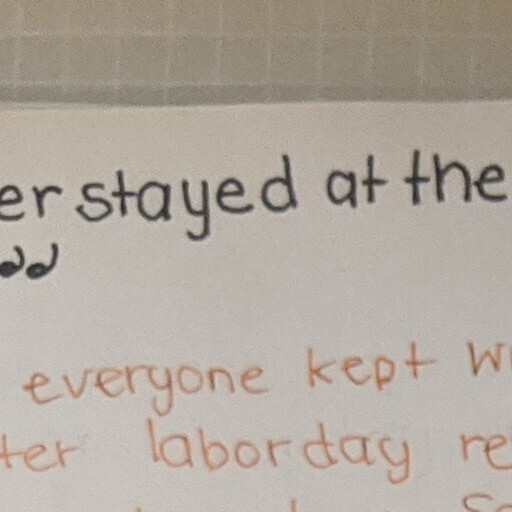 er stayed at the
everyone kept w
ter labor day re